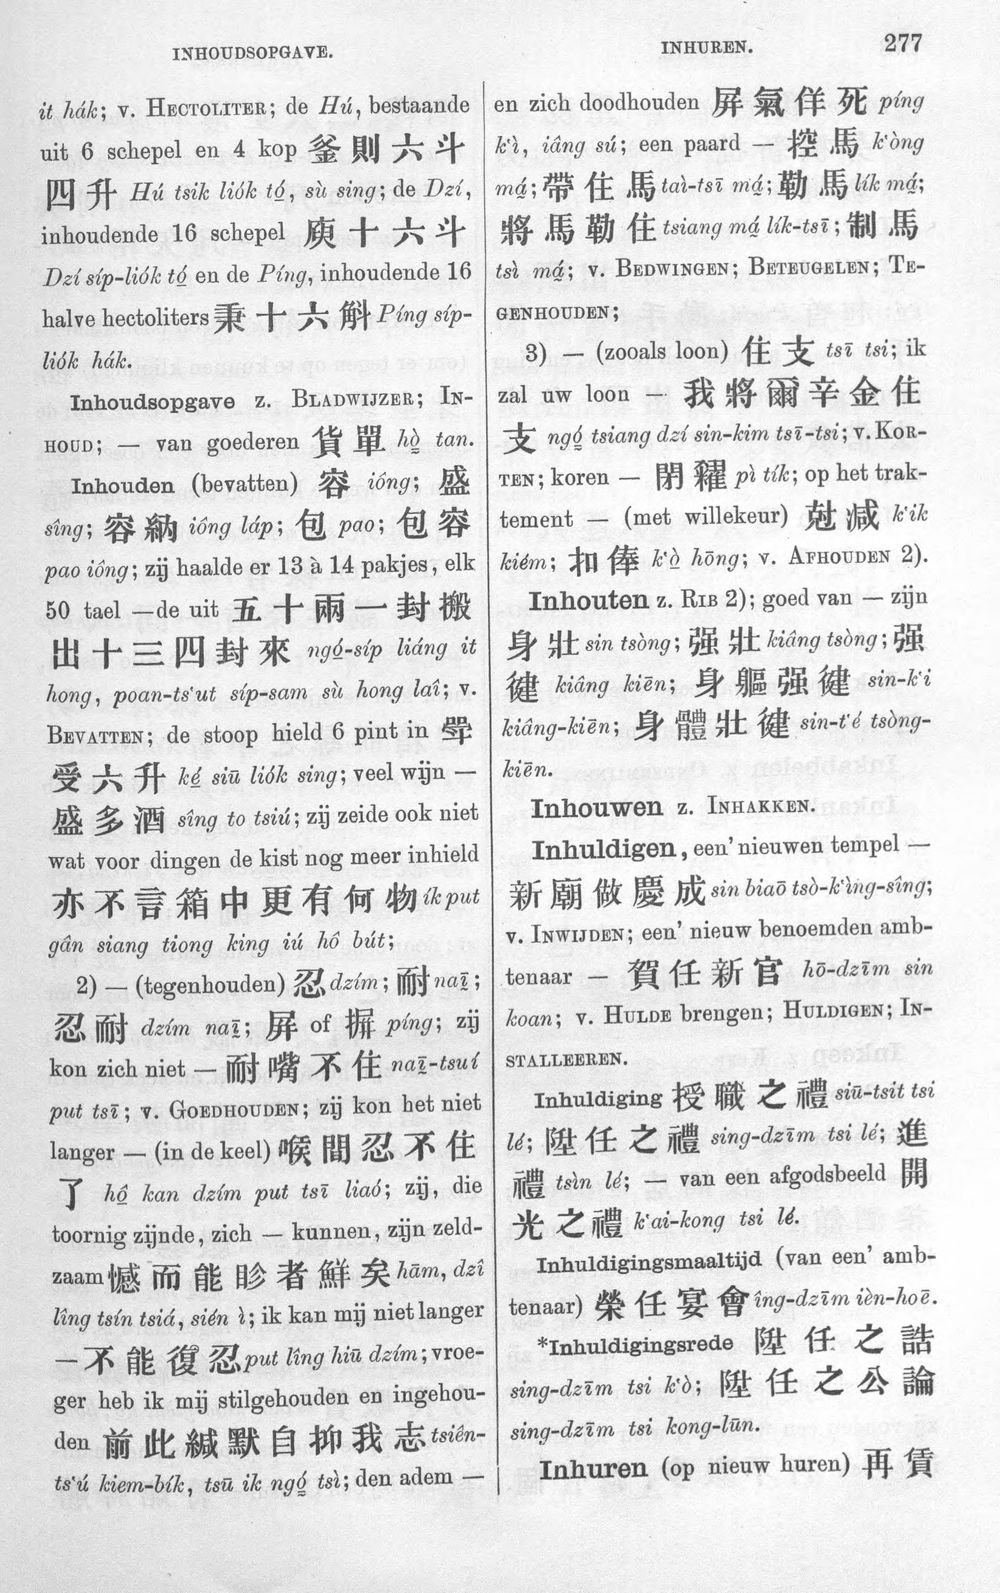 INHOUDSOPGAVE.
INHUREN.
277
it hák; v. HECTOLITER; de Hú, bestaande
uit 6 schepel en 4 kop 釜則六斗
四升 Hú tsik liók tó̤, sù sing; de Dzí,
inhoudende 16 schepel 庾十六斗
Dzí síp-liók tó̤ en de Píng, inhoudende 16
halve hectoliters 秉十六斛 Píng síp-
liók hák.
Inhoudsopgave z. BLADWIJZER; IN-
HOUD; — van goederen 貨單 hò̤ tan.
Inhouden (bevatten) 容 iông; 盛
sîng; 容納 iông láp; 包 pao; 包容
pao iông; zij haalde er 13 à 14 pakjes, elk
50 tael —de uit 五十兩一封搬
出十三四封來 ngó̤-síp liáng it
hong, poan-ts'ut síp-sam sù hong laî; v.
BEVATTEN; de stoop hield 6 pint in 斝
受六升 ké siū liók sing; veel wijn —
盛多酒 sîng to tsiú; zij zeide ook niet
wat voor dingen de kist nog meer inhield
亦不言箱中更有何物 ík put
gân siang tiong king iú hô bút;
2) — (tegenhouden) 忍 dzím; 耐 naī̤;
忍耐 dzím naī̤; 屏 of 摒 píng; zij
kon zich niet — 耐嘴不住 naī̤-tsuí
put tsī; v. GOEDHOUDEN; zij kon het niet
langer — (in de keel) 喉間忍不住
了 hô̤ kan dzím put tsī liaó; zij, die
toornig zijnde, zich — kunnen, zijn zeld-
zaam 憾而能眕者鮮矣 hām, dzî
lîng tsín tsiá, sién ì; ik kan mij niet langer
— 不能復忍 put lîng hiū dzím; vroe-
ger heb ik mij stilgehouden en ingehou-
den 前此緘默自抑我志 tsiên-
ts'ú kiem-bík, tsū ik ngó̤ tsì; den adem —
en zich doodhouden 屏氣佯死 píng
k'ì, iâng sú; een paard — 控馬 k'òng
má̤; 帶住馬 taì-tsī má̤; 勒馬 lík má̤;
將馬勒住 tsiang má̤ lík-tsī; 制馬
tsì má̤; v. BEDWINGEN; BETEUGELEN; TE-
GENHOUDEN;
3) — (zooals loon) 住支 tsī tsi; ik
zal uw loon — 我將爾辛金住
支 ngó̤ tsiang dzí sin-kim tsī-tsi; v. KOR-
TEN; koren — 閉糴 pì tík; op het trak-
tement — (met willekeur) 尅減 k'ik
kiém; 扣俸 k'ò̤ hōng; v. AFHOUDEN 2).
Inhouten z. RIB 2); goed van — zijn
身壯 sin tsòng; 强壯 kiâng tsòng; 强
健 kiâng kiēn; 身軀强健 sin-k'i
kiâng-kiēn; 身體壯健 sin-t'é tsòng-
kiēn.
Inhouwen z. INHAKKEN.
Inhuldigen, een' nieuwen tempel —
新廟做慶成 sin biaō tsò-k'ìng-sîng;
v. INWIJDEN; een' nieuw benoemden amb-
tenaar — 賀任新官 hō-dzīm sin
koan; v. HULDE brengen; HULDIGEN; IN-
STALLEEREN.
Inhuldiging 授職之禮 siū-tsit tsi
lé; 陞任之禮 sing-dzīm tsi lé; 進
禮 tsìn lé; — van een afgodsbeeld 開
光之禮 k'ai-kong tsi lé.
Inhuldigingsmaaltijd (van een' amb-
tenaar) 榮任宴會 îng-dzīm ièn-hoē.
*Inhuldigingsrede 陞任之誥
sing-dzīm tsi k'ò; 陞任之公論
sing-dzīm tsi kong-lūn.
Inhuren (op nieuw huren) 再賃